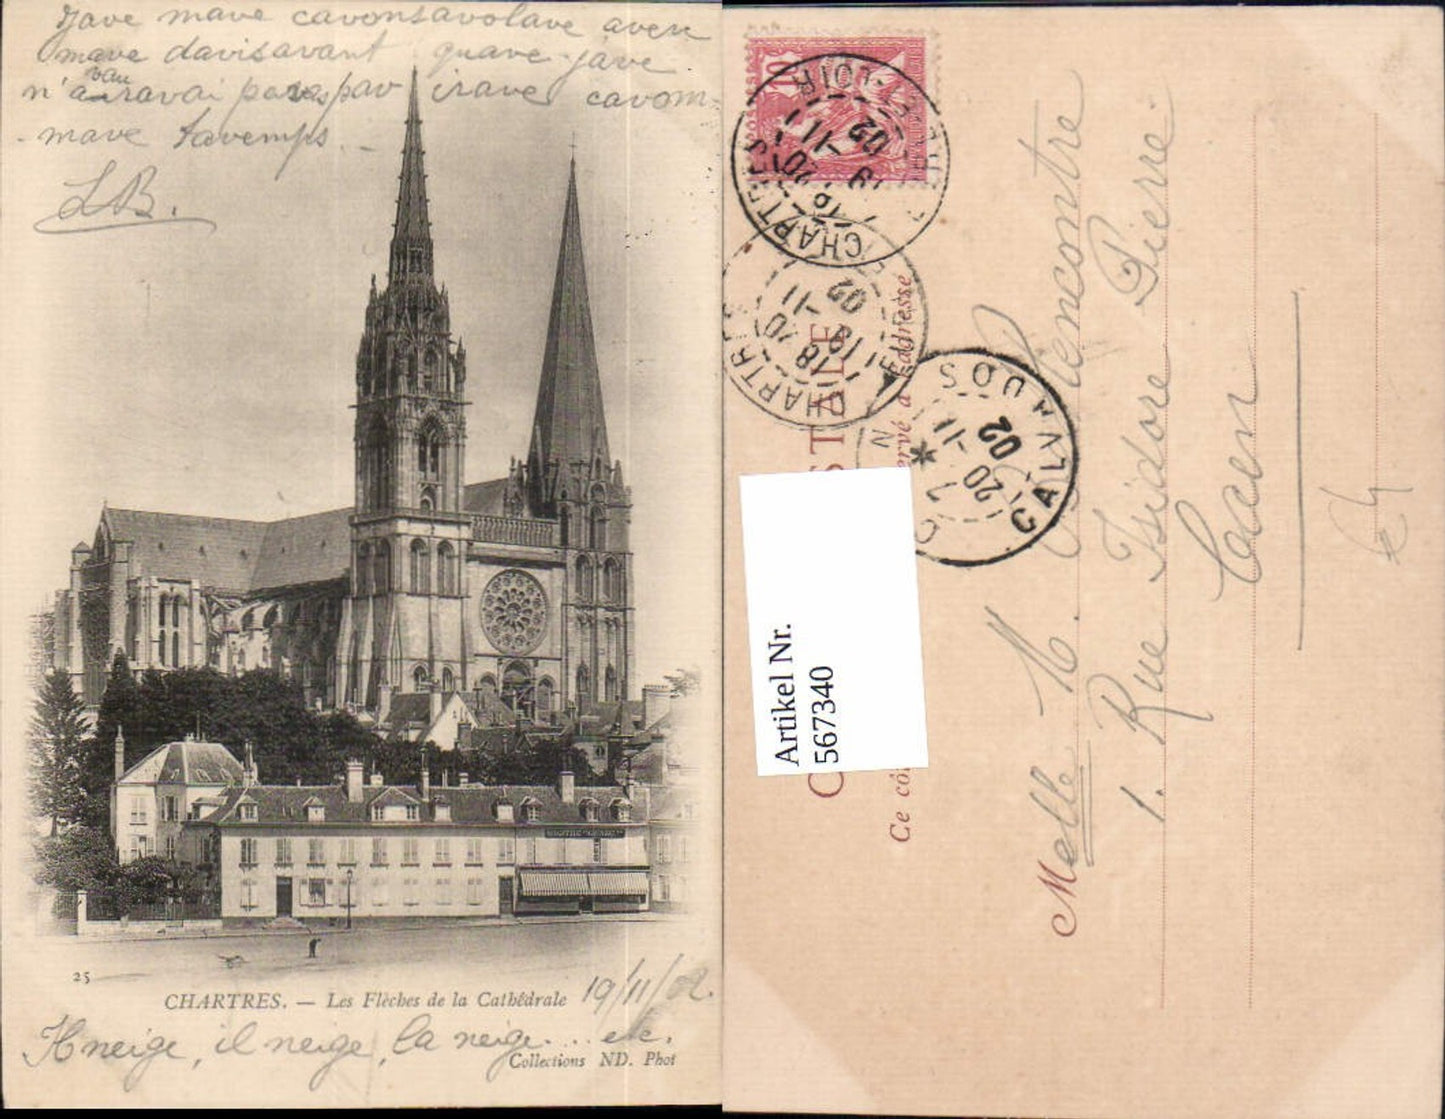 Jave mave cavonsavolave avec
mave davisavant quave jave
n'a
vau
iravai pavas pav irave cavom-
mave tavemps.
LB.
25
CHARTRES. — Les Flèches de la Cathédrale
19/11/02.
Il neige, il neige, la neige.... etc.
Collections ND. Phot
10
CHARTRES
EURE-ET-LOIR
19 -11
02
CHARTRES
18
19 -11
02
CALVADOS
20 -11
02
Ce côté
réservé à l'adresse
Artikel Nr.
567340
Melle M. Rencontre
1. Rue Isidore Pierre
Caen